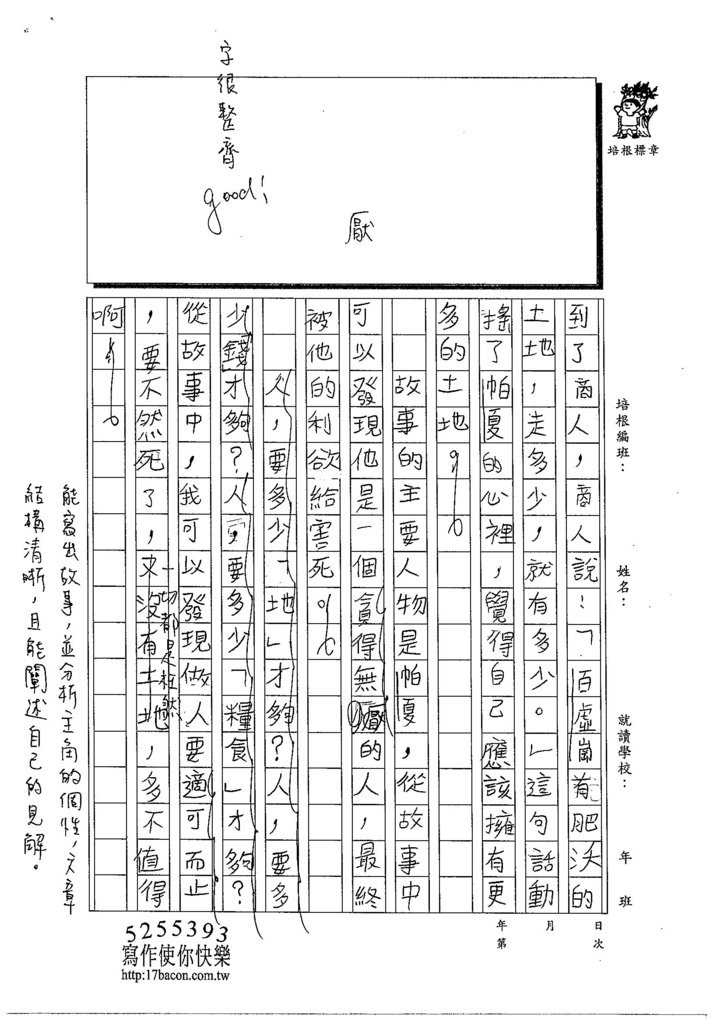 字很整齊
good!
厭
培根標章
培根編班：
姓名：
就讀學校：
年
班
年
第
月
日
次
到了商人，商人說：「百虛崗有肥沃的
土地，走多少，就有多少。」這句話動
搖了帕夏的心裡，覺得自己應該擁有更
多的土地。
故事的主要人物是帕夏，從故事中
可以發現他是一個貪得無厭的人，最終
被他的利欲給害死。
人，要多少「地」才夠？人，要多
少「錢」才夠？人，要多少「糧食」才夠？
從故事中，我可以發現做人要適可而止
，要不然死了，沒有土地，多不值得
一切都是枉然
啊！
能寫出故事，並分析主角的個性，文章
結構清晰，且能闡述自己的見解。
5255393
寫作使你快樂
http:17bacon.com.tw